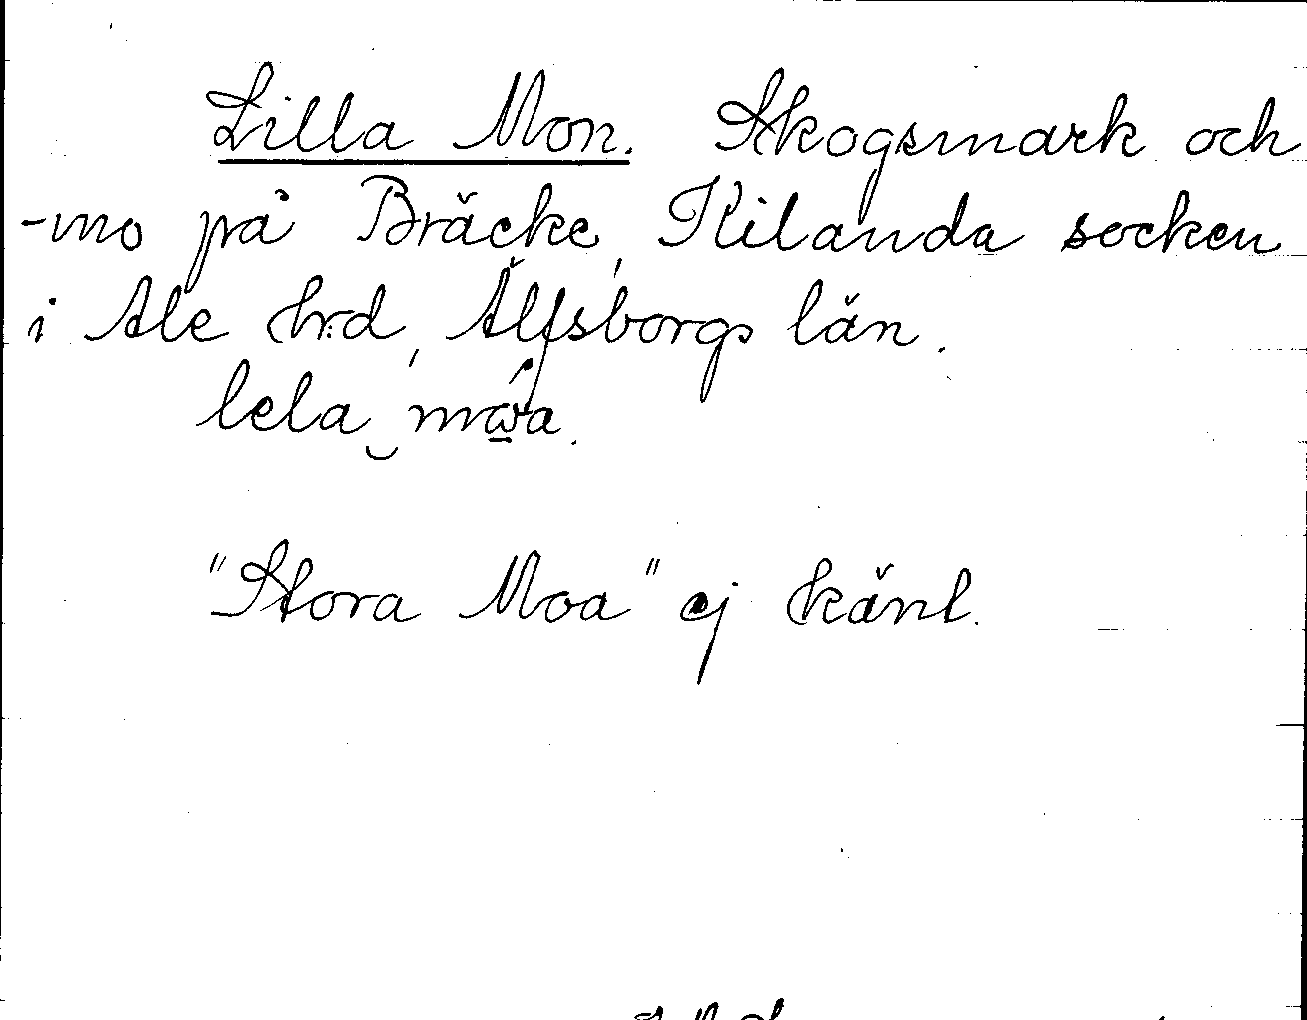 Lilla Mon. Skogsmark och
-mo på Bräcke, Kilanda socken
i Ale hrd, Älfsborgs län.
lela
"Stora Moa" ej känt.